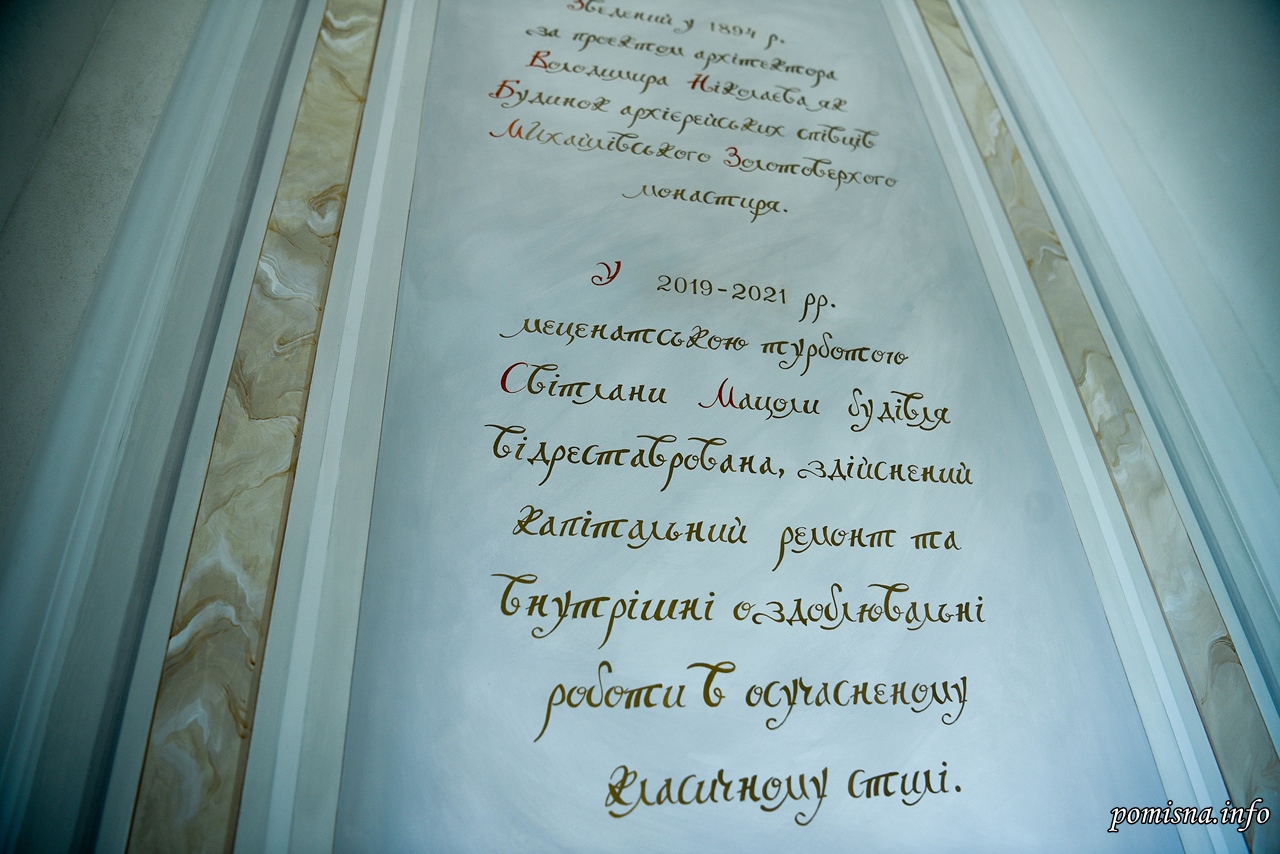 Зведений у 1894 р.
за проєктом архітектора
Володимира Ніколаєва як
Будинок архієрейських співців
Михайлівського Золотоверхого
монастиря.
У 2019-2021 рр.
меценатською турботою
Світлани Мацоли будівля
відреставрована, здійснений
капітальний ремонт та
внутрішні оздоблювальні
роботи в осучасненому
класичному стилі.
pomisna.info